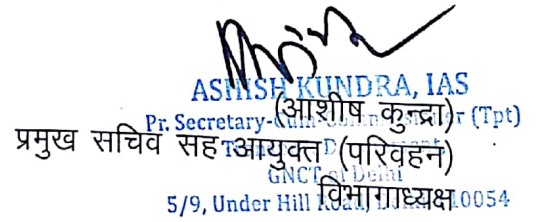 ASHISH KUNDRA, IAS
(आशीष कुन्द्रा)
Pr. Secretary- (Tpt)
प्रमुख सचिव सह आयुक्त (परिवहन)
GNCT of Delhi
विभागाध्यक्ष
5/9, Under Hill 10054